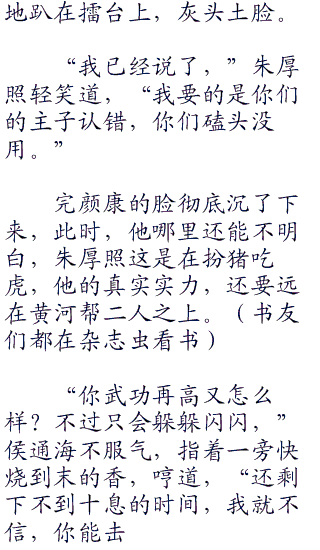 地趴在擂台上，灰头土脸。
“我已经说了，”朱厚
照轻笑道，“我要的是你们
的主子认错，你们磕头没
用。”
完颜康的脸彻底沉了下
来，此时，他哪里还能不明
白，朱厚照这是在扮猪吃
虎，他的真实实力，还要远
在黄河帮二人之上。（书友
们都在杂志虫看书）
“你武功再高又怎么
样？不过只会躲躲闪闪，”
侯通海不服气，指着一旁快
烧到末的香，哼道，“还剩
下不到十息的时间，我就不
信，你能击